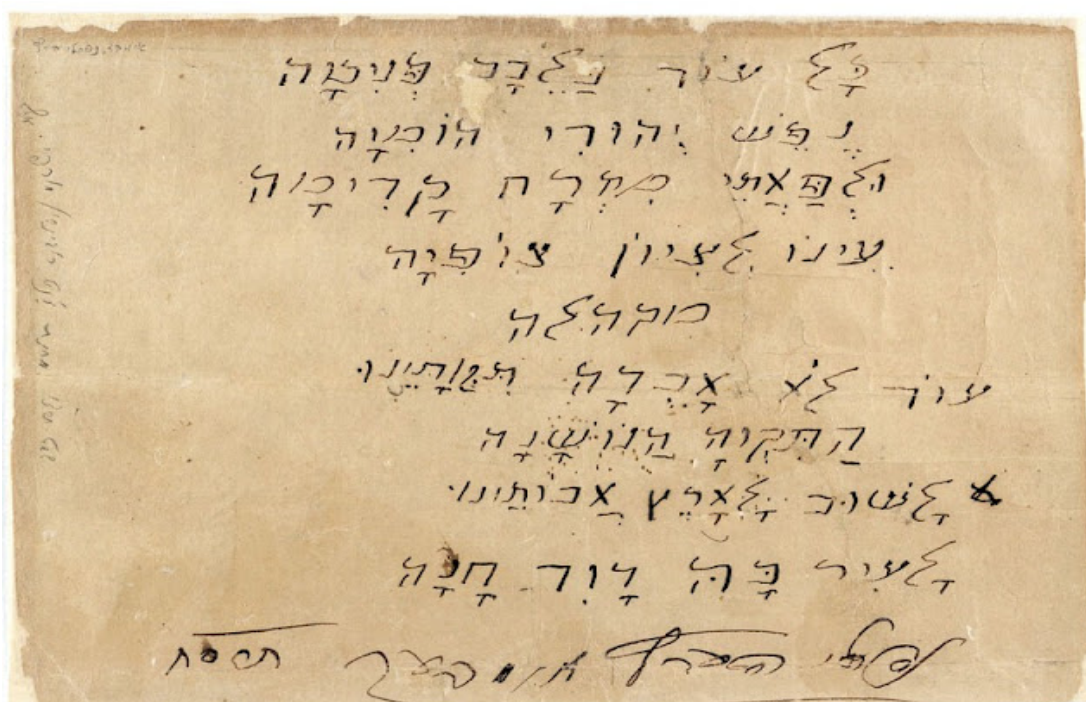 כָּל עוֹד בַּלֵבָב פְּנִימָה
נֶפֶשׁ יְהוּדִי הוֹמִיָה
וּלְפַאֲתֵי מִזְרָח קָדִימָה
עֵינוֹ לְצִיוֹן צוֹפִיָה
מקהלה
עוֹד לֹא אָבְדָה תִּקְוָתֵינוּ
הַתִּקְוָה הַנוֹשָׁנָה
לָשׁוּב לְאֶרֶץ אֲבוֹתֵינוּ
לָעִיר בָּהּ דָוִד חָנָה
נפתלי הערץ אימבער תרסח